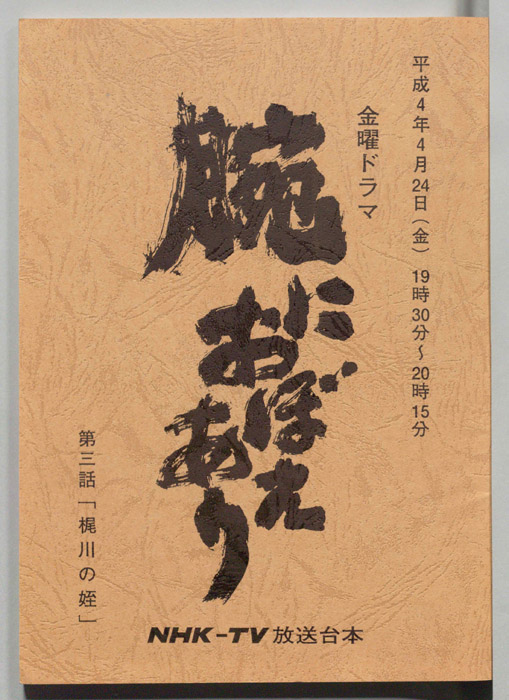 平成4年4月24日(金) 19時30分〜20時15分
金曜ドラマ
腕におぼえあり
第三話「梶川の姪」
NHK-TV 放送台本